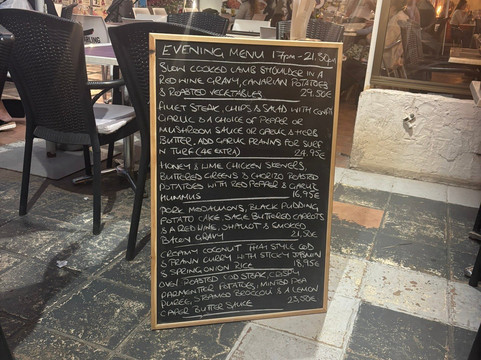 EVENING MENU 17pm - 21.30pm
SLOW COOKED LAMB SHOULDER IN A
RED WINE GRAVY, CANARIAN POTATOES
& ROASTED VEGETABLES 29.50€
FILLET STEAK, CHIPS & SALAD WITH CONFIT
GARLIC & A CHOICE OF PEPPER OR
MUSHROOM SAUCE OR GARLIC & HERB
BUTTER, ADD GARLIC PRAWNS FOR SURF
N TURF (4€ EXTRA) 24.95€
HONEY & LIME CHICKEN SKEWERS,
BUTTERED GREENS & CHORIZO ROASTED
POTATOES WITH RED PEPPER & GARLIC
HUMMUS 16.95€
PORK MEDALLIONS, BLACK PUDDING
POTATO CAKE, SAGE BUTTERED CARROTS
& A RED WINE, SHALLOT & SMOKED
BACON GRAVY 21.50€
CREAMY COCONUT THAI STYLE COD
& PRAWN CURRY WITH STICKY JASMINE
& SPRING ONION RICE 18.95€
OVEN ROASTED COD STEAK, CRISPY
PARMENTIER POTATOES, MINTED PEA
PUREE, STEAMED BROCCOLI & A LEMON
CAPER BUTTER SAUCE 23.50€